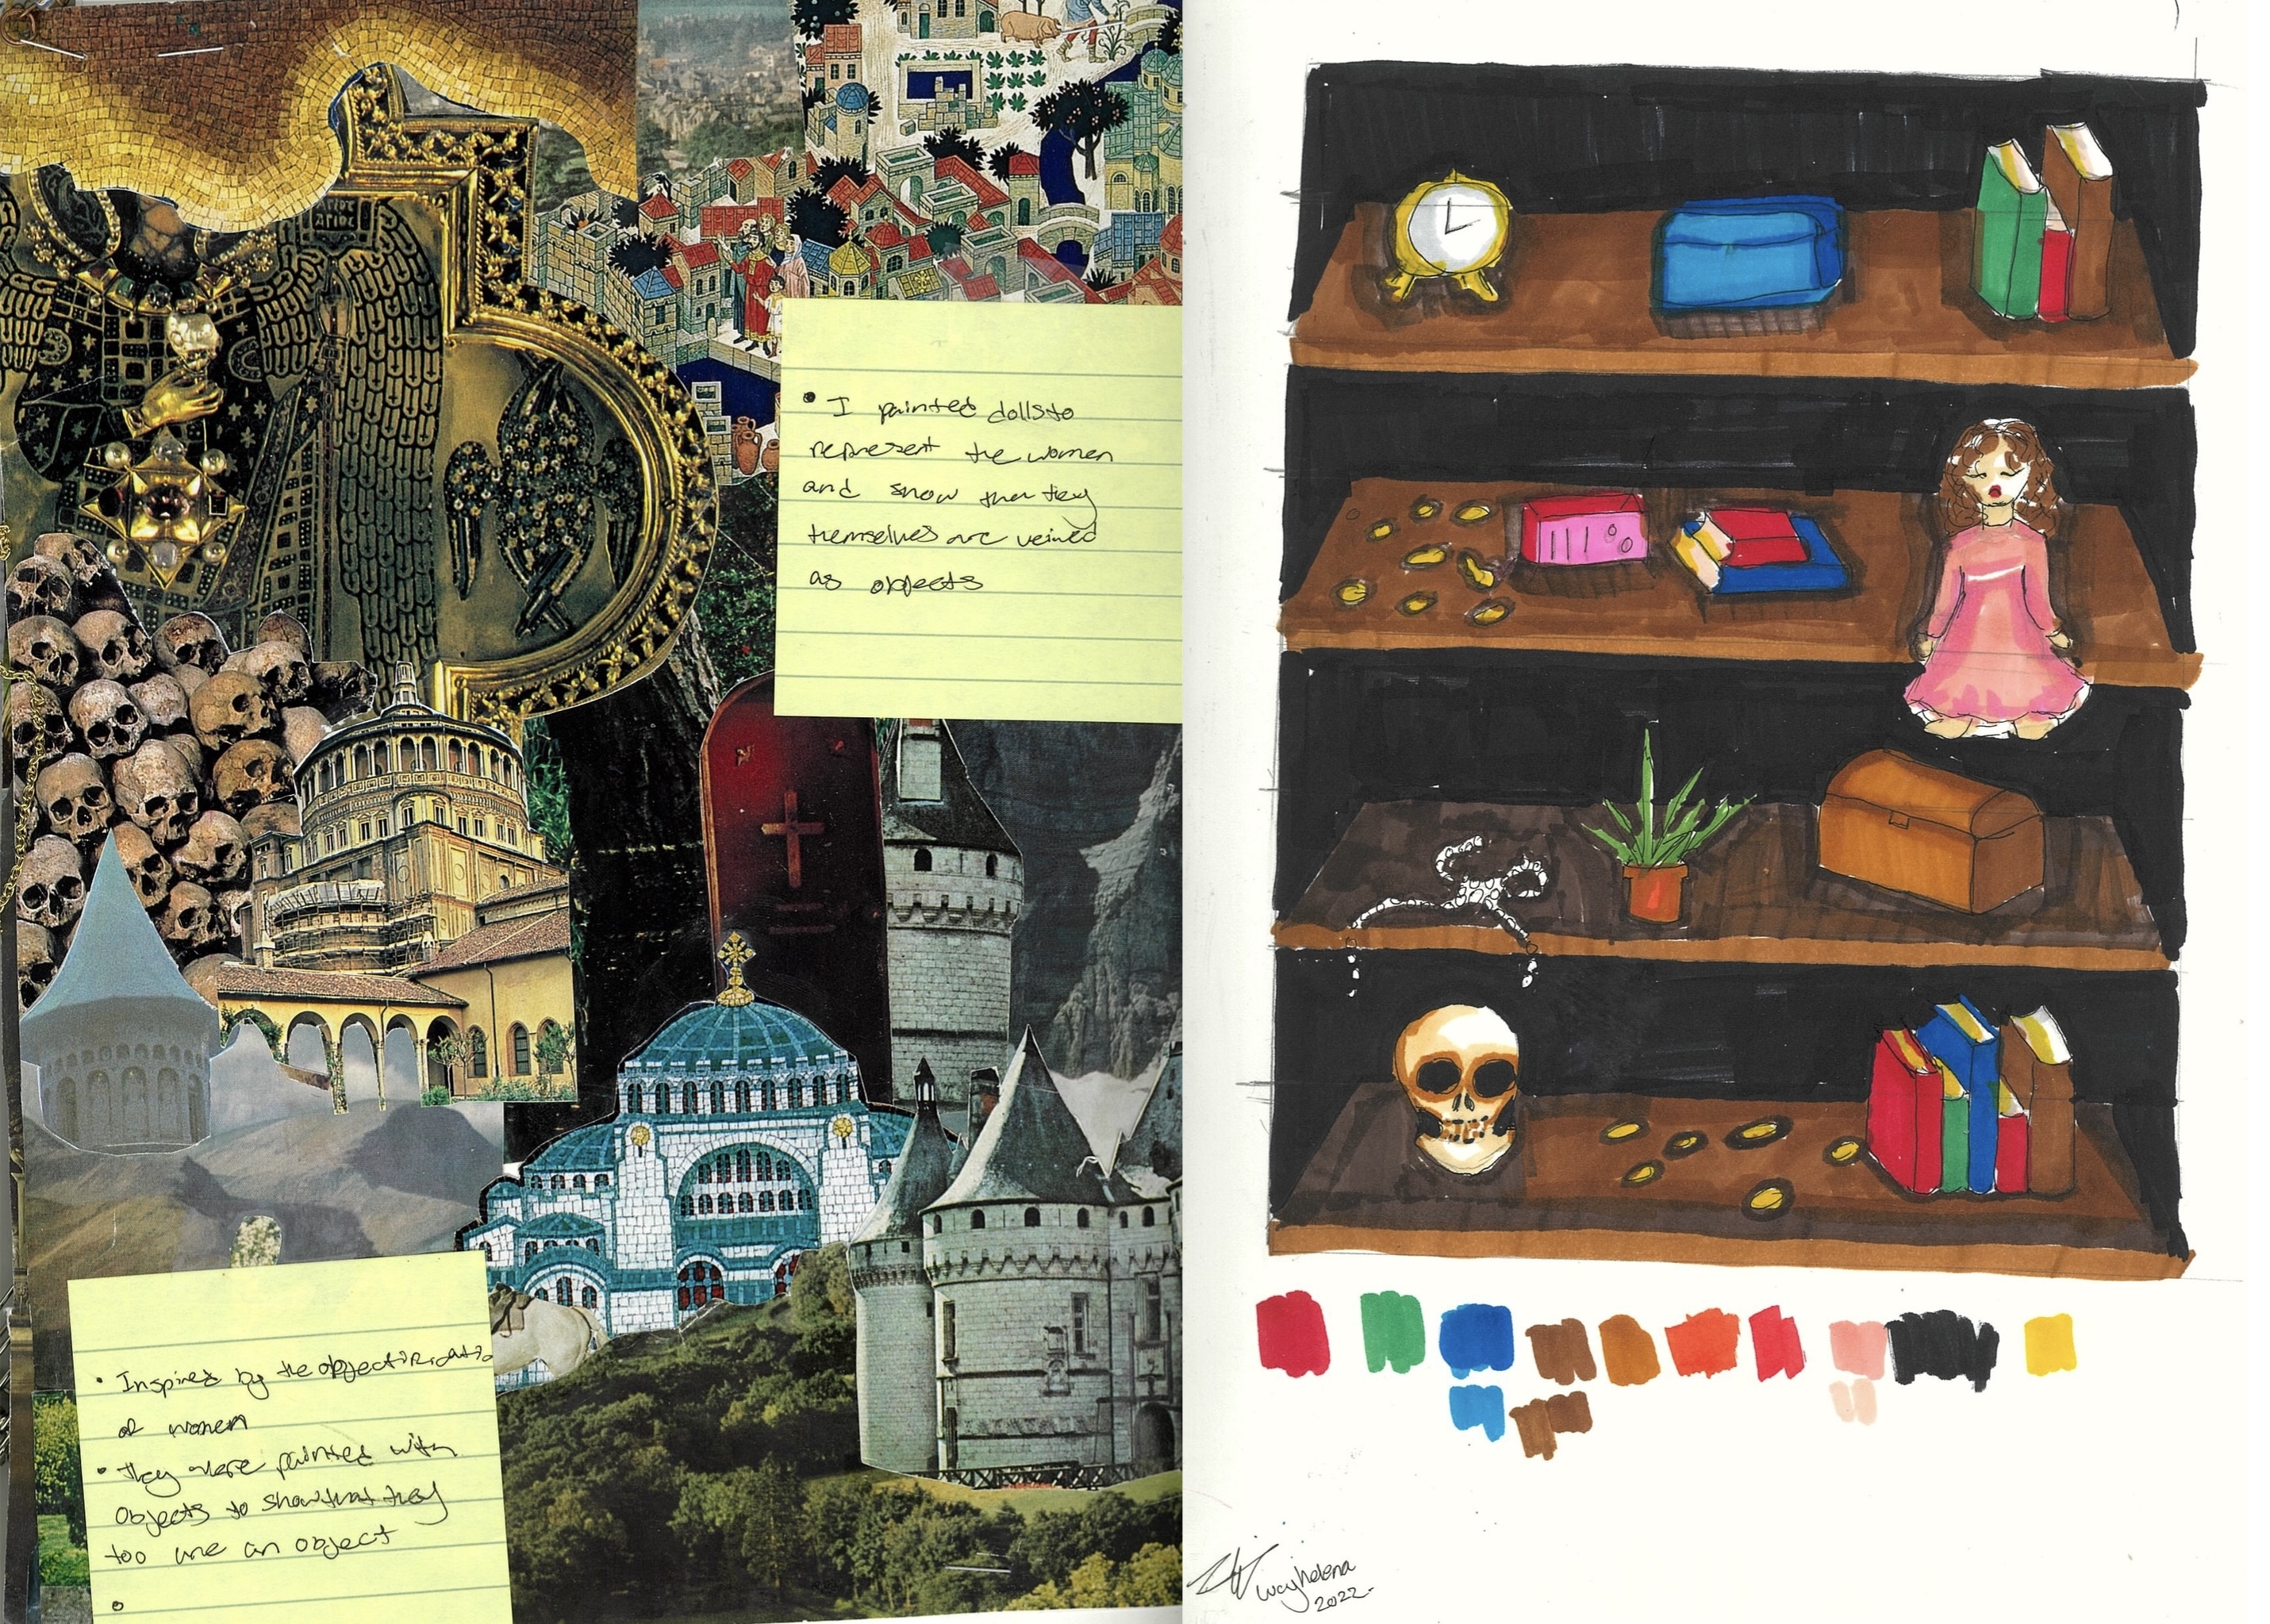 • I painted dolls to
represent the women
and show that they
themselves are veiwed
as objects
• Inspired by the objectificatio
of women
• they were painted with
objects to show that they
too are an object
lucyhelena
2022